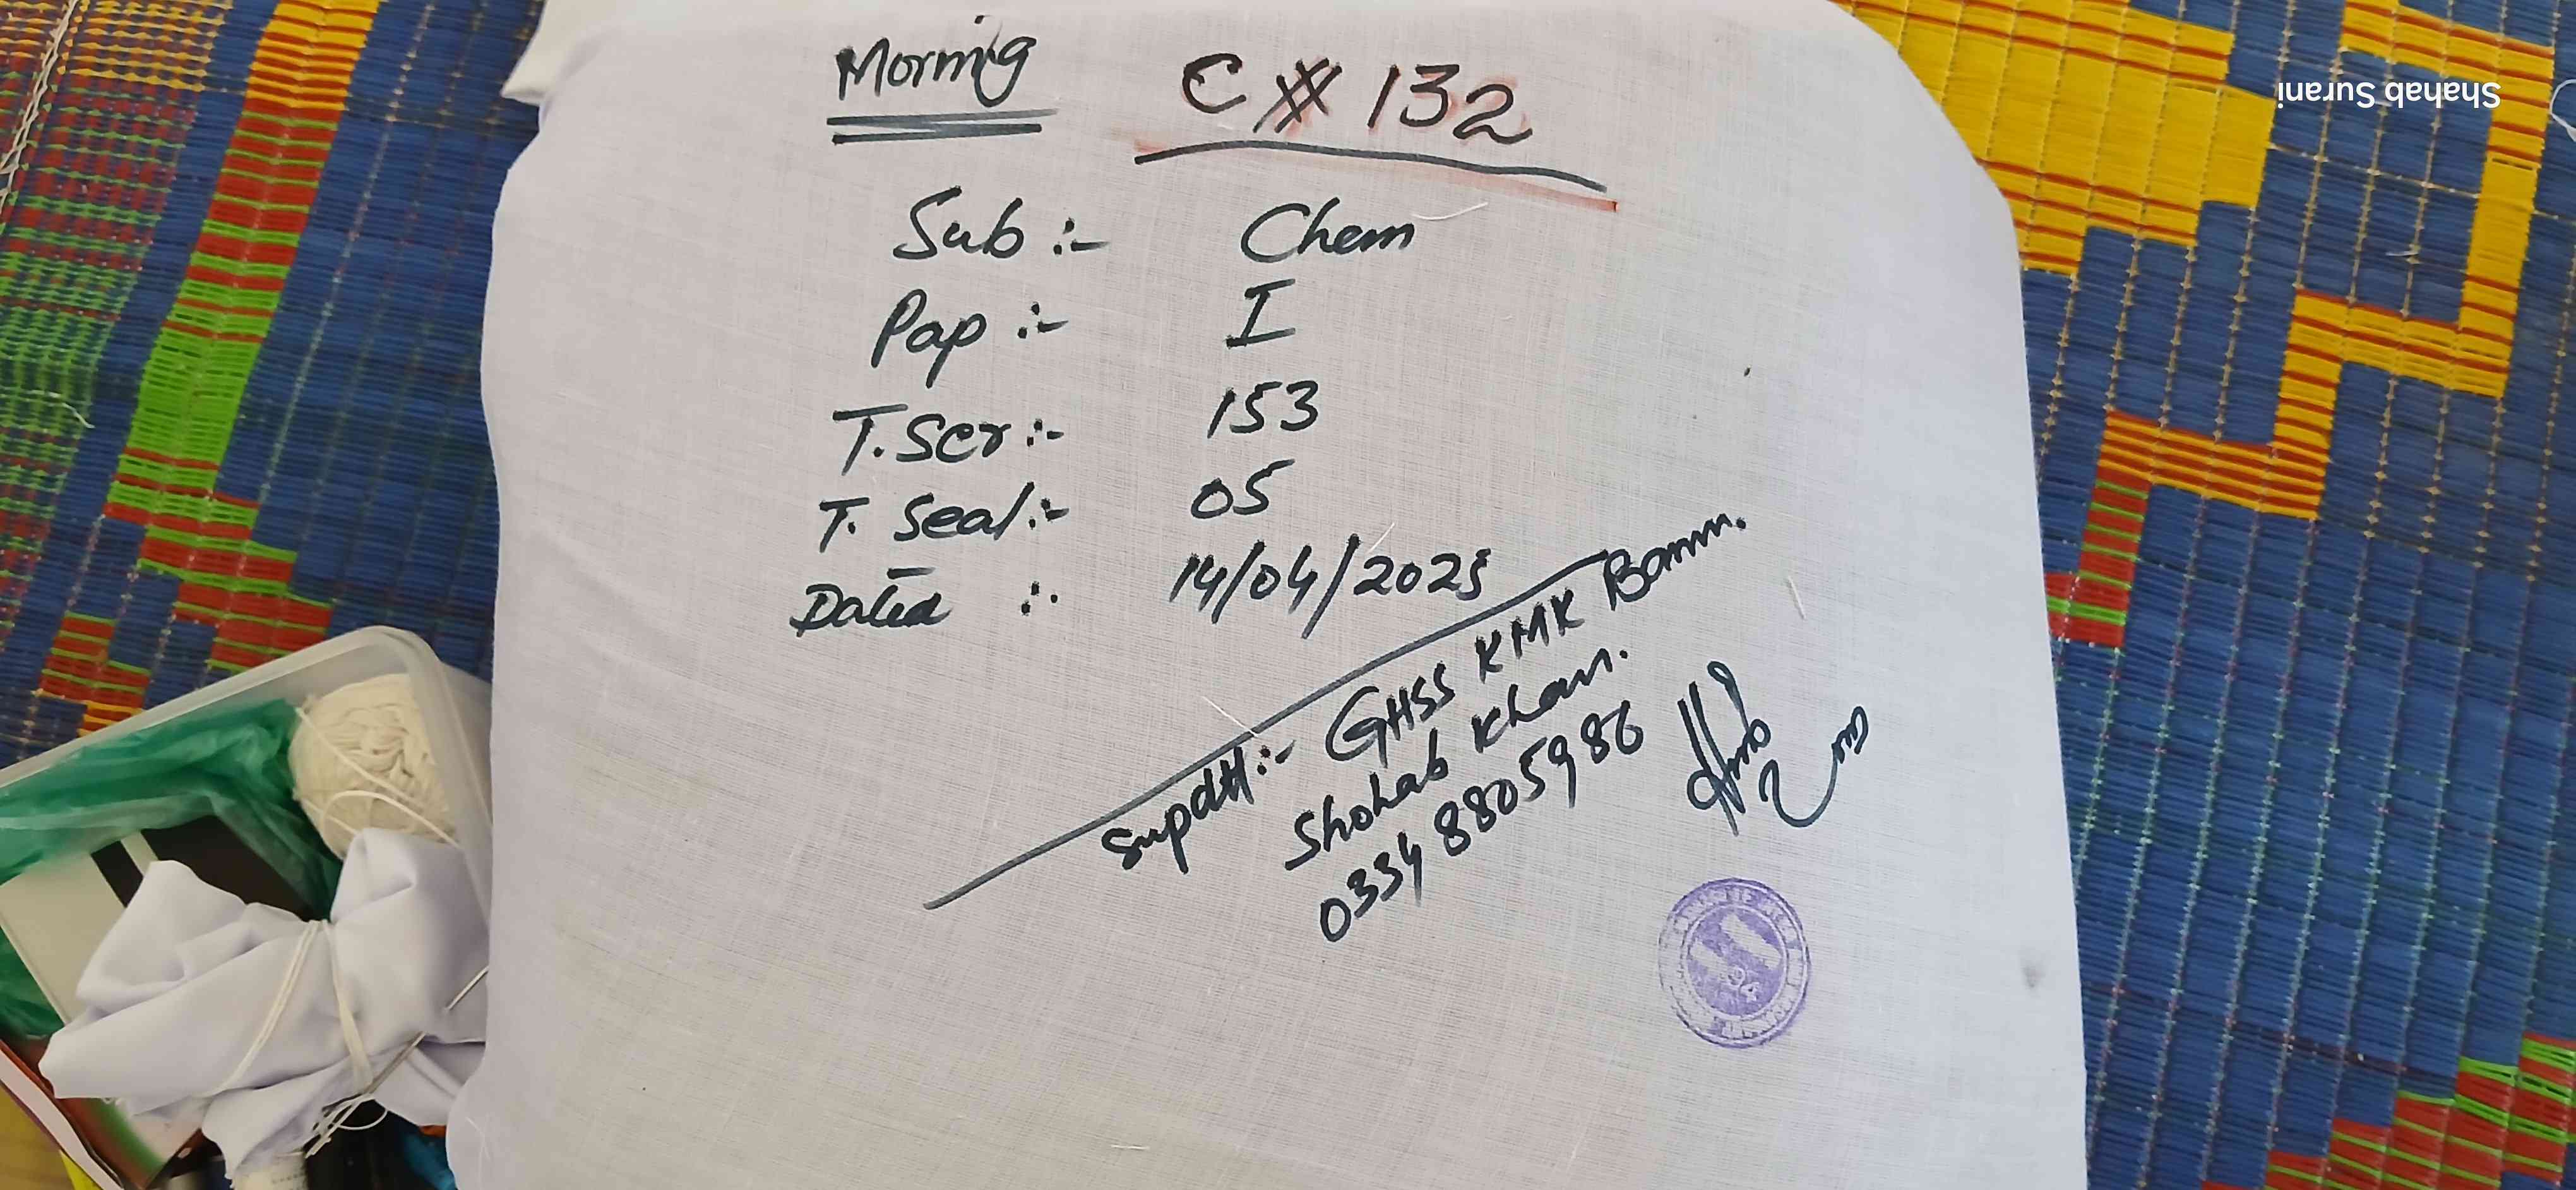 Morning C # 132
Sub :- Chem
Pap :- I
T. Scr :- 153
T. Seal :- 05
Dated :. 14/04/2025
Supdtt :- GHSS KMK Bannu.
Shohab Khan.
0334 8805986
Shahab Surani